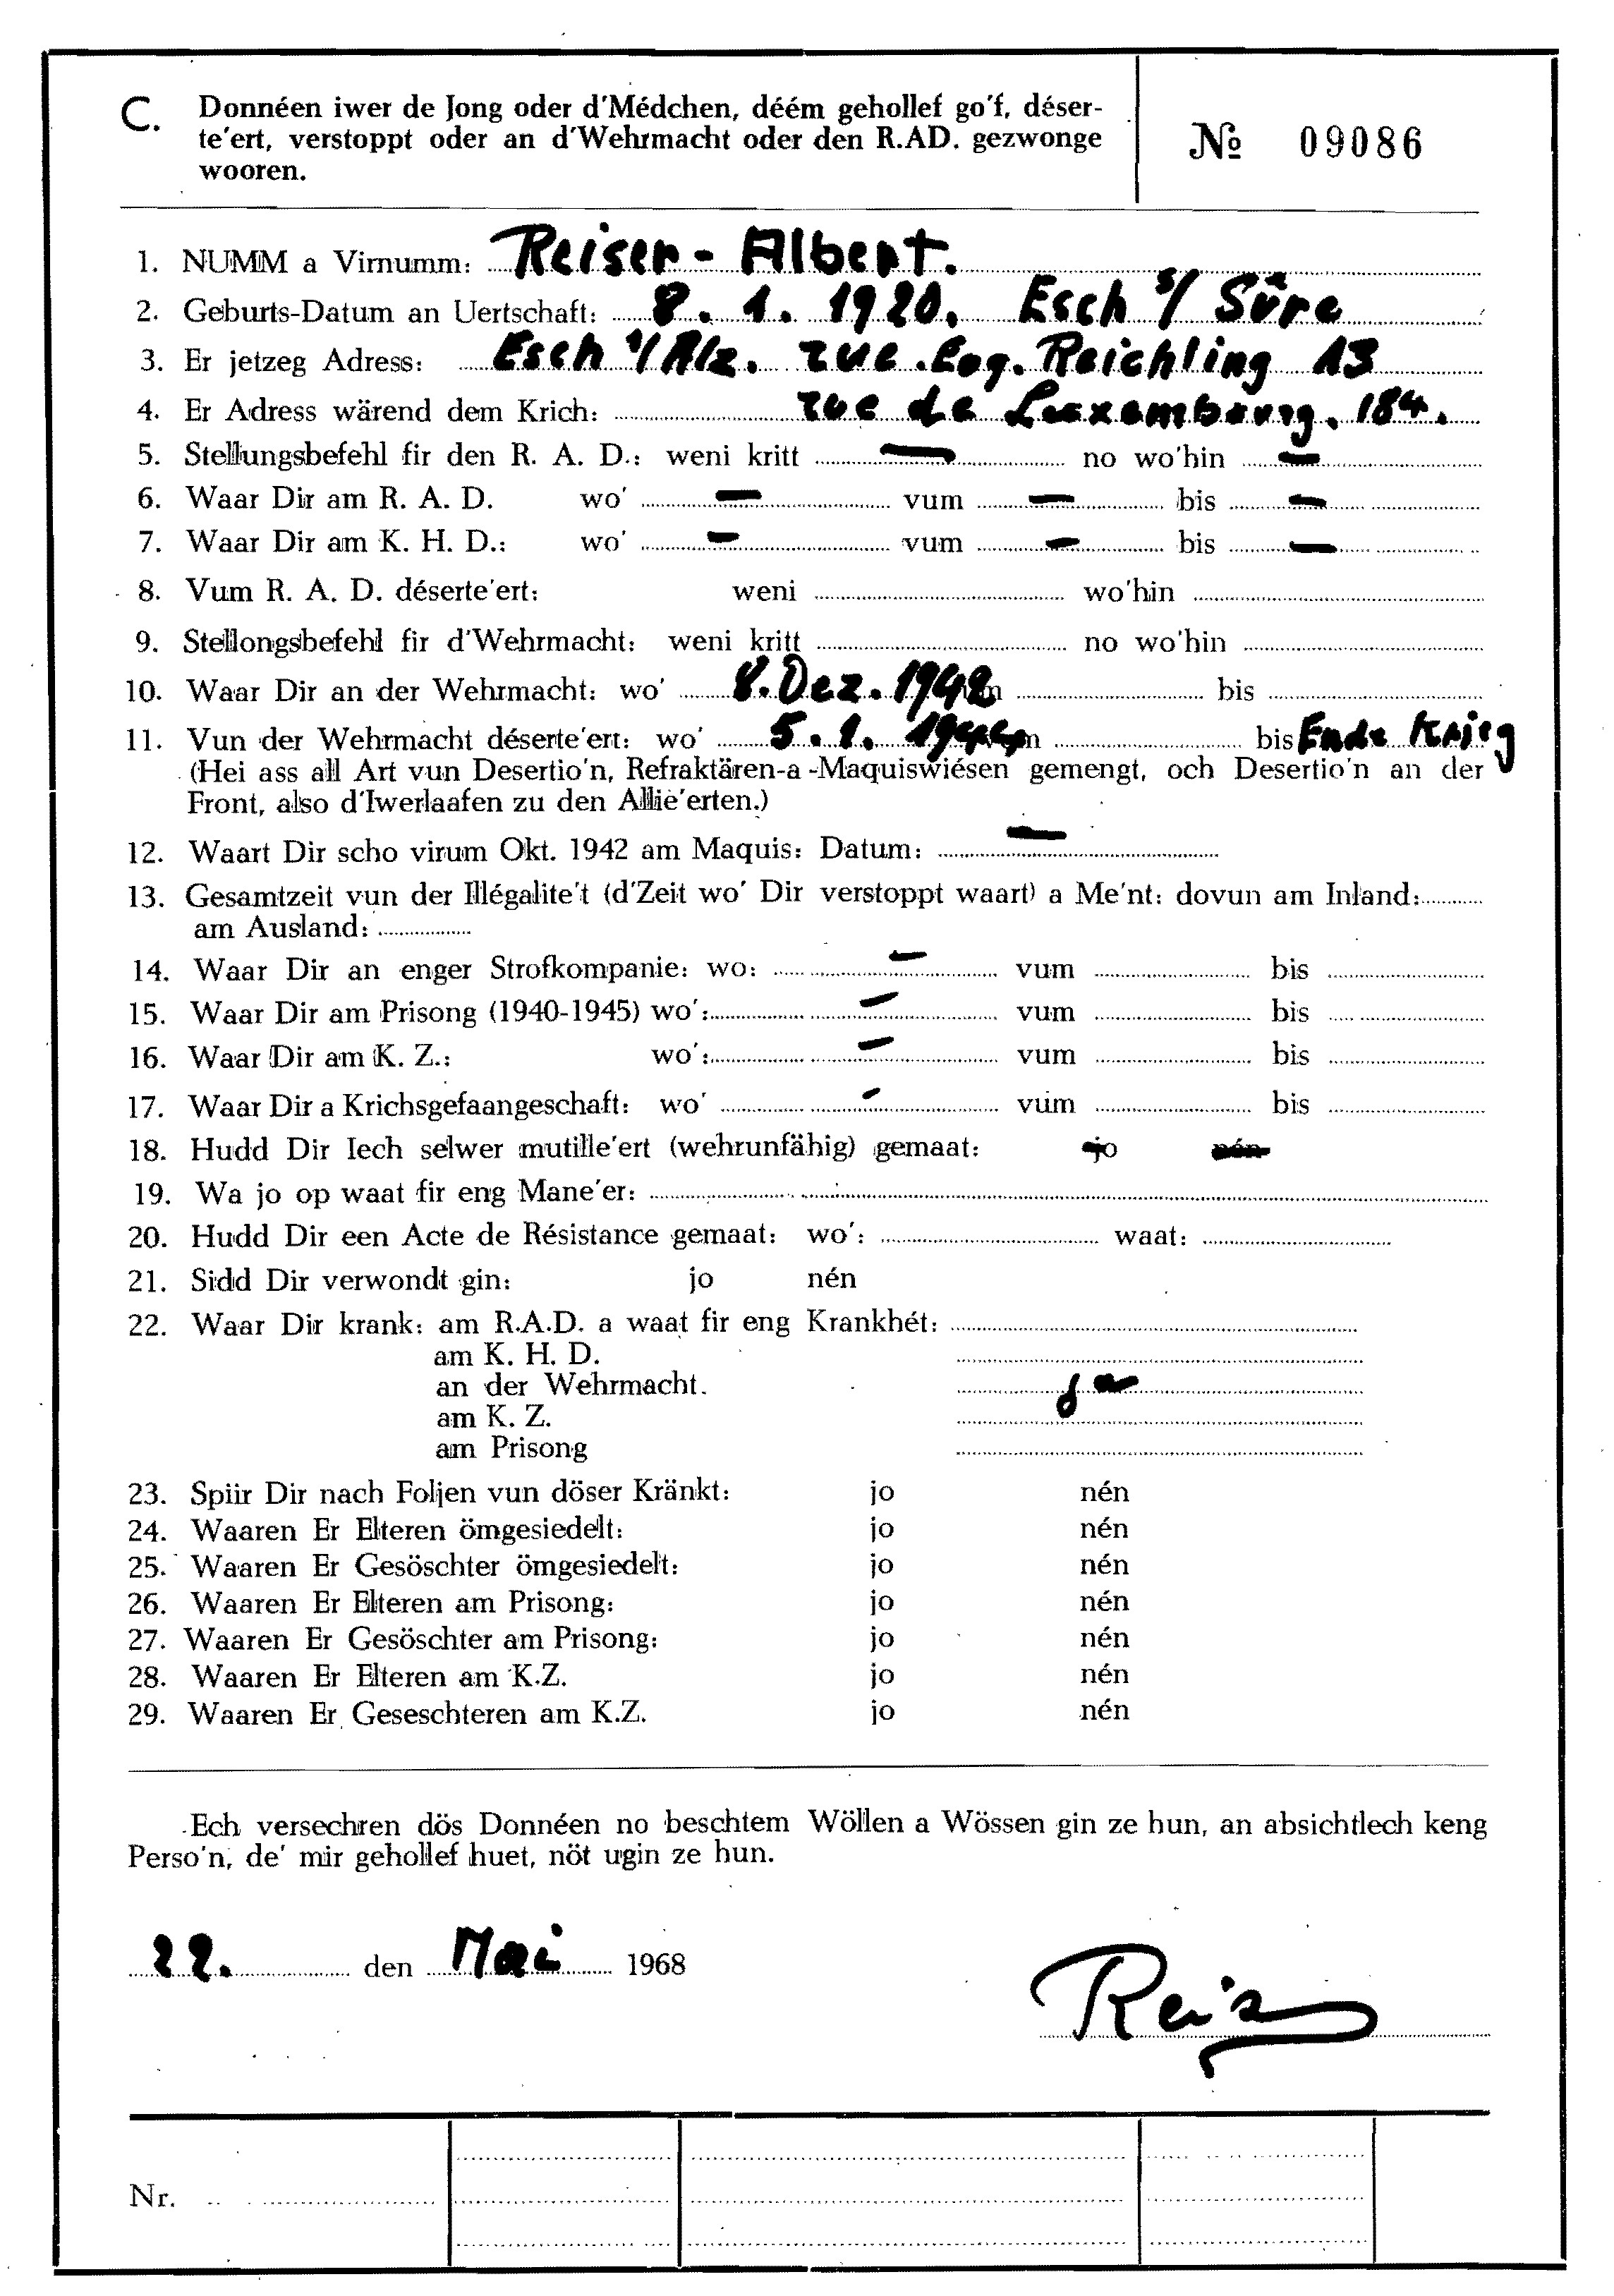 C. Donnéen iwer de Jong oder d'Médchen, déém gehollef go'f, déser-
te'ert, verstoppt oder an d'Wehrmacht oder den R.AD. gezwonge
wooren.
№ 09086
1. NUMM a Virnumm: Reiser - Albert.
2. Geburts-Datum an Uertschaft: 8. 1. 1920. Esch s/ Sûre
3. Er jetzeg Adress: Esch s/ Alz. rue Eug. Reichling 13
4. Er Adress wärend dem Krich: rue de Luxembourg. 184.
5. Stellungsbefehl fir den R. A. D.: weni kritt — no wo'hin —
6. Waar Dir am R. A. D. wo' — vum — bis —
7. Waar Dir am K. H. D.: wo' — vum — bis —
8. Vum R. A. D. déserte'ert: weni wo'hin
9. Stellongsbefehl fir d'Wehrmacht: weni kritt no wo'hin
10. Waar Dir an der Wehrmacht: wo' 8. Dez. 1942 vum bis
11. Vun der Wehrmacht déserte'ert: wo' 5. 1. 1944 vum bis Ende Krieg
(Hei ass all Art vun Desertio'n, Refraktären-a -Maquiswiésen gemengt, och Desertio'n an der
Front, also d'Iwerlaafen zu den Allie'erten.)
12. Waart Dir scho virum Okt. 1942 am Maquis: Datum: —
13. Gesamtzeit vun der Illégalite't (d'Zeit wo' Dir verstoppt waart) a Me'nt: dovun am Inland:
am Ausland:
14. Waar Dir an enger Strofkompanie: wo: — vum bis
15. Waar Dir am Prisong (1940-1945) wo': — vum bis
16. Waar Dir am K. Z.: wo': — vum bis
17. Waar Dir a Krichsgefaangeschaft: wo' — vum bis
18. Hudd Dir Iech selwer mutille'ert (wehrunfähig) gemaat: jo nén
19. Wa jo op waat fir eng Mane'er:
20. Hudd Dir een Acte de Résistance gemaat: wo': waat:
21. Sidd Dir verwondt gin: jo nén
22. Waar Dir krank: am R.A.D. a waat fir eng Krankhét:
am K. H. D.
an der Wehrmacht. Ja
am K. Z.
am Prisong
23. Spiir Dir nach Foljen vun döser Kränkt: jo nén
24. Waaren Er Elteren ömgesiedelt: jo nén
25. Waaren Er Gesöschter ömgesiedelt: jo nén
26. Waaren Er Elteren am Prisong: jo nén
27. Waaren Er Gesöschter am Prisong: jo nén
28. Waaren Er Elteren am K.Z. jo nén
29. Waaren Er Geseschteren am K.Z. jo nén
Ech versechren dös Donnéen no beschtem Wöllen a Wössen gin ze hun, an absichtlech keng
Perso'n, de' mir gehollef huet, nöt ugin ze hun.
22. den Mai 1968
Nr.